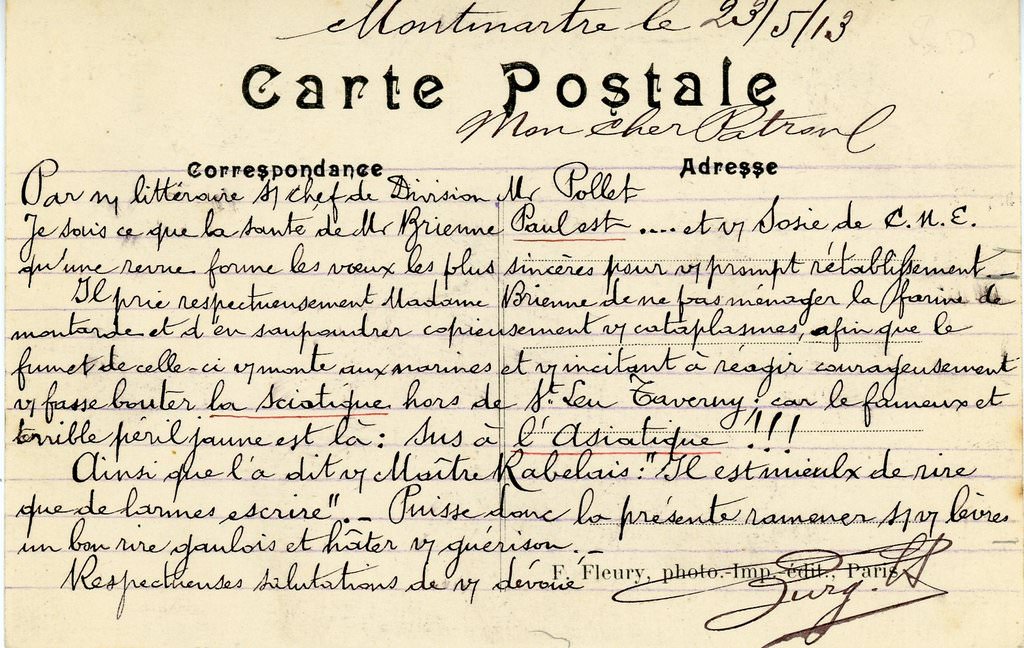 Montmartre le 23/5/13
Carte Postale
Mon Cher Patron
Correspondance
Adresse
Par littéraire chef de Division Mr Pollet
Je sais ce que la santé de Mr Brienne Paul est .... et Sosie de C. N. E.
qu'une revue forme les vœux les plus sincères pour prompt rétablissement._
Il prie respectueusement Madame Brienne de ne pas ménager la farine de
moutarde et d'en saupoudrer copieusement cataplasmes, afin que le
fumet de celle-ci monte aux narines et incitant à réagir courageusement
fasse bouter la sciatique hors de St Leu Taverny; car le fameux et
terrible péril jaune est là: sus à l'Asiatique !!!
Ainsi que l'a dit Maître Rabelais: "Il est mieulx de rire
que de larmes escrire"._ Puisse donc la présente ramener lèvres
un bon rire gaulois et hâter guérison._
Respectueuses salutations de dévoué
F. Fleury, photo.-Imp.-édit., Paris